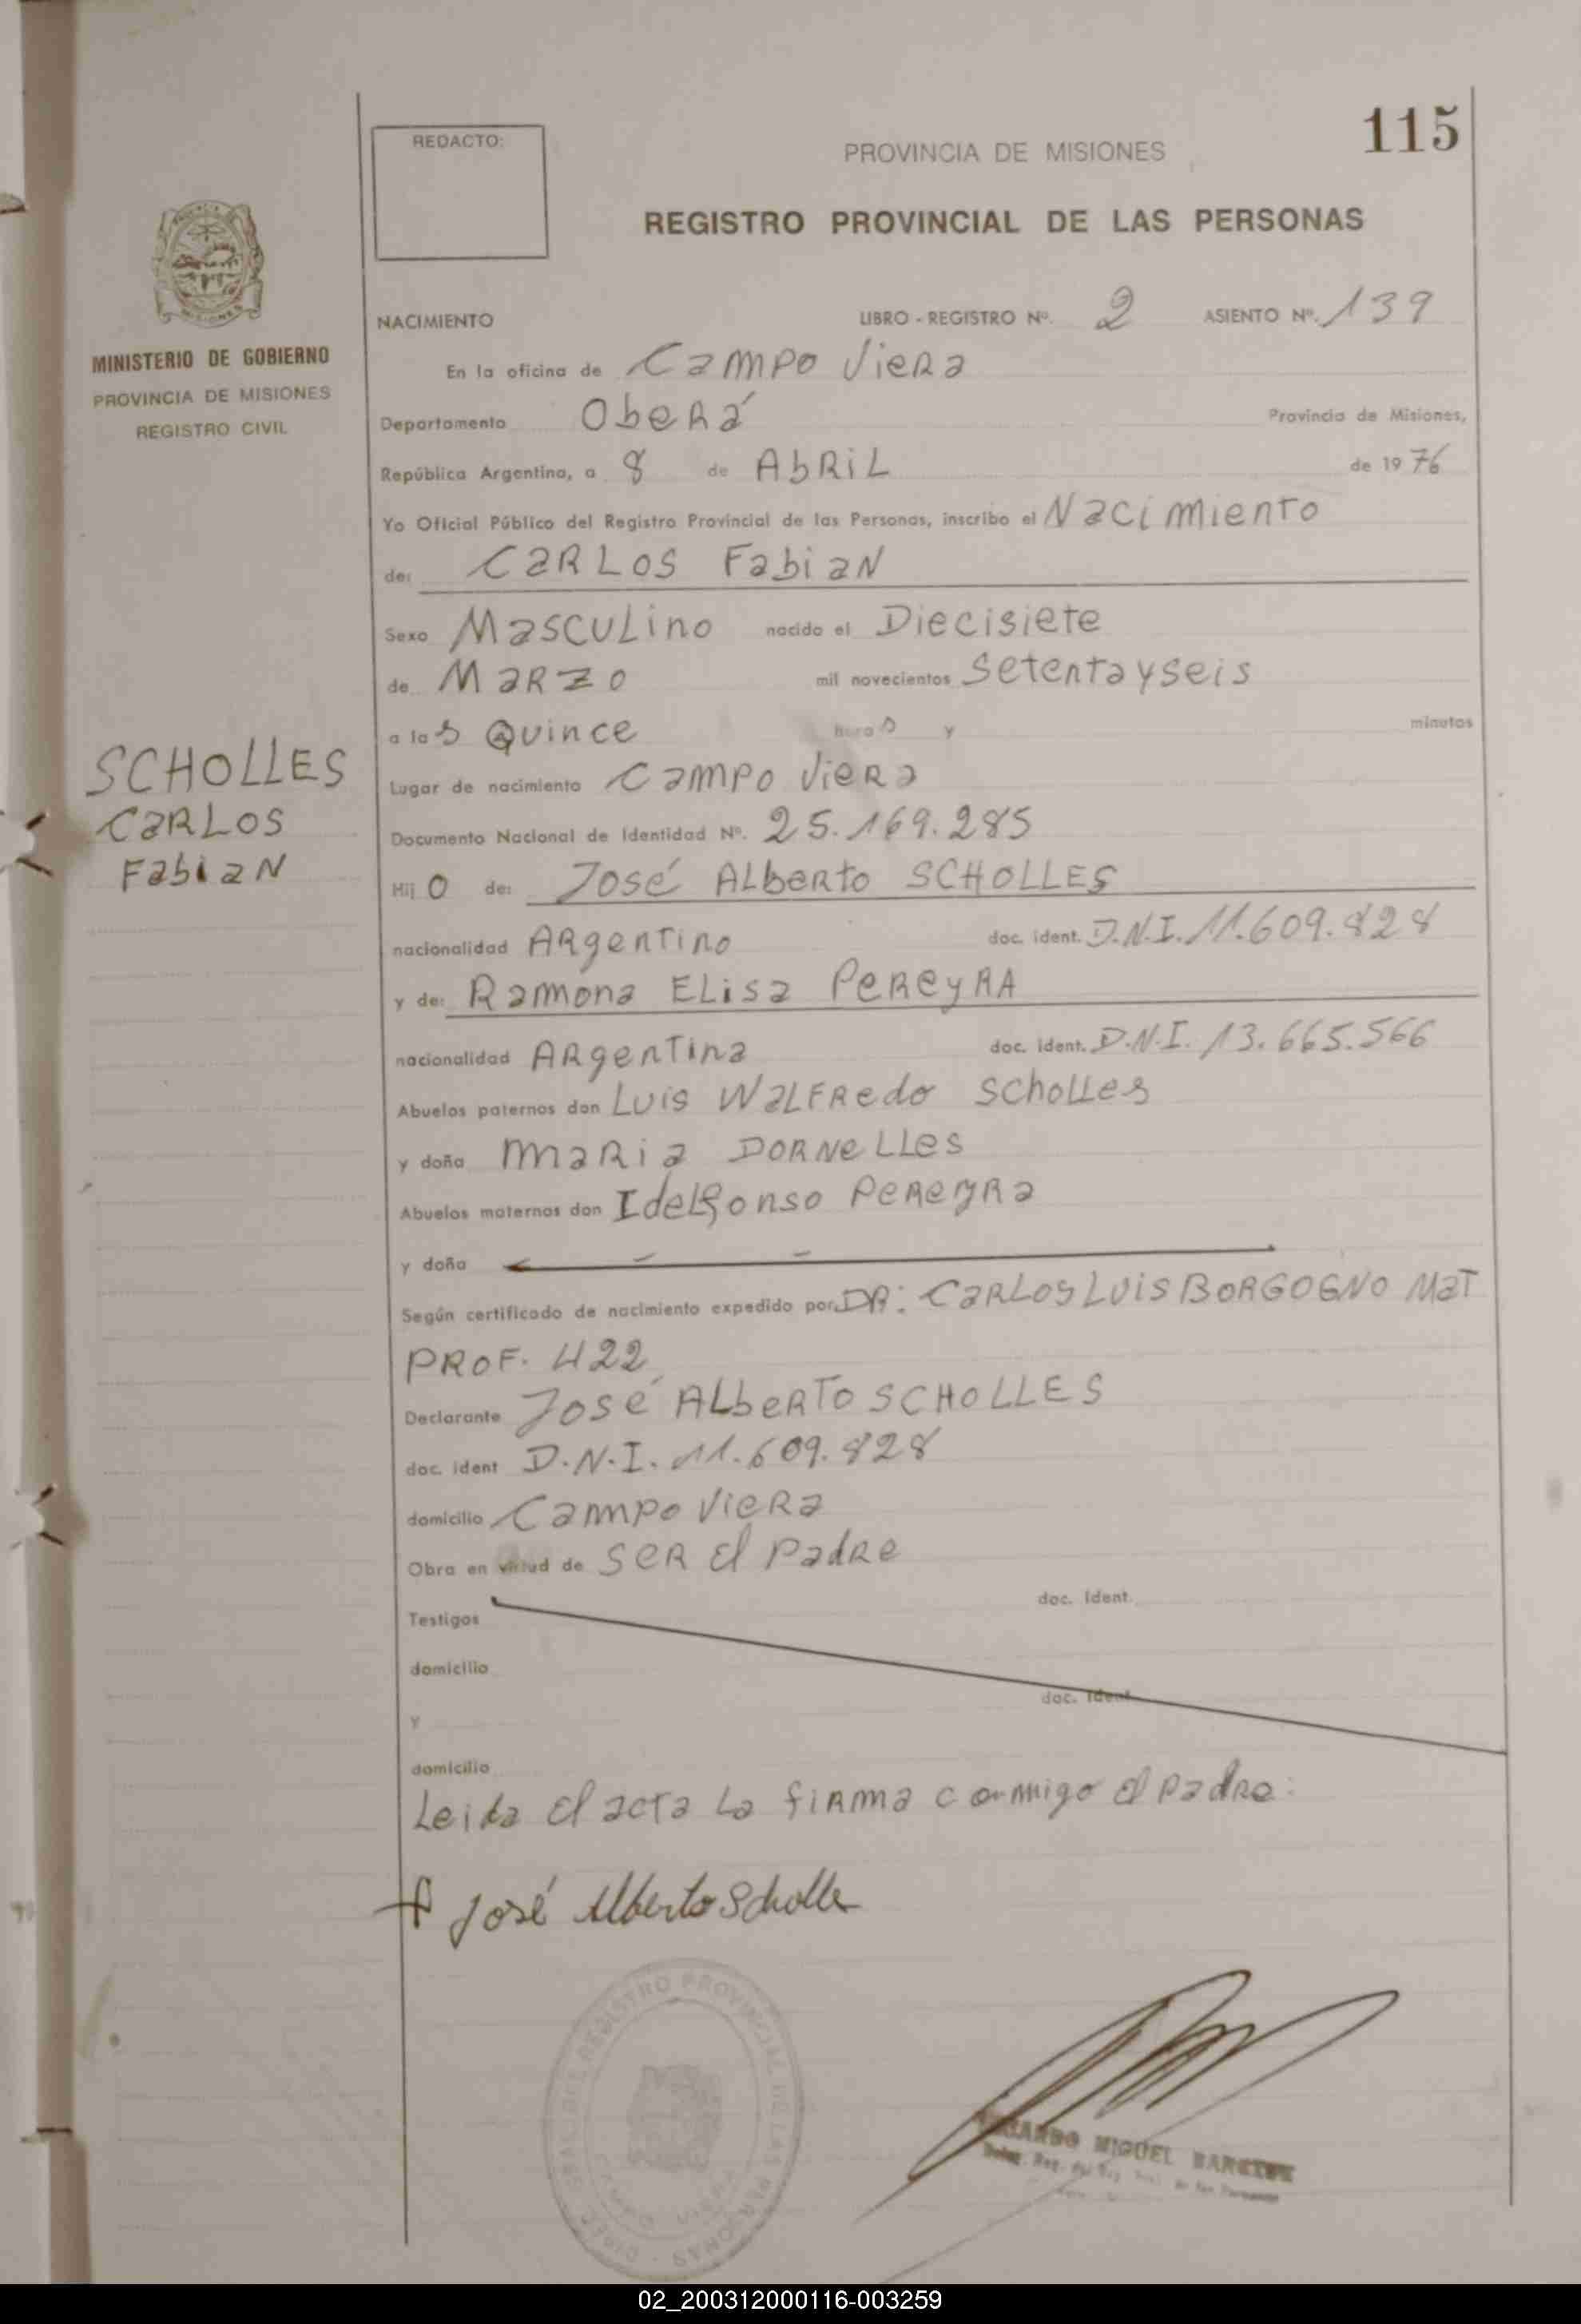 115
REDACTO:
PROVINCIA DE MISIONES
REGISTRO PROVINCIAL DE LAS PERSONAS
MINISTERIO DE GOBIERNO
PROVINCIA DE MISIONES
REGISTRO CIVIL
NACIMIENTO LIBRO - REGISTRO Nº. 2 ASIENTO Nº. 139
En la oficina de Campo Viera
Departamento Oberá Provincia de Misiones,
República Argentina, a 8 de ABRIL de 1976
Yo Oficial Público del Registro Provincial de las Personas, inscribo el Nacimiento
de: CARLOS Fabian
Sexo Masculino nacido el Diecisiete
de Marzo mil novecientos Setentayseis
a las Quince horas y minutos
SCHOLLES
CARLOS
Fabian
Lugar de nacimiento Campo Viera
Documento Nacional de Identidad Nº. 25.169.285
Hijo de: José ALberto SCHOLLES
nacionalidad Argentino doc. ident. D.N.I. 11.609.828
y de: Ramona Elisa PEReyRA
nacionalidad Argentina doc. ident. D.N.I. 13.665.566
Abuelos paternos don Luis Walfredo Scholles
y doña Maria DORNeLLes
Abuelos maternos don Idelfonso Pereyra
y doña
Según certificado de nacimiento expedido por DR: CARLOS LUIS BORGOGNO MAT
PROF. 422
Declarante José ALBERTO SCHOLLES
doc. ident D.N.I. 11.609.828
domicilio Campo Viera
Obra en virtud de SER El Padre
doc. ident.
Testigos
domicilio
doc. ident.
y
domicilio
Leida el acta La firma conmigo el padre:
José Alberto Scholles
REGISTRO PROVINCIAL DE LAS PERSONAS
CAMPO VIERA
MIGUEL
02_200312000116-003259